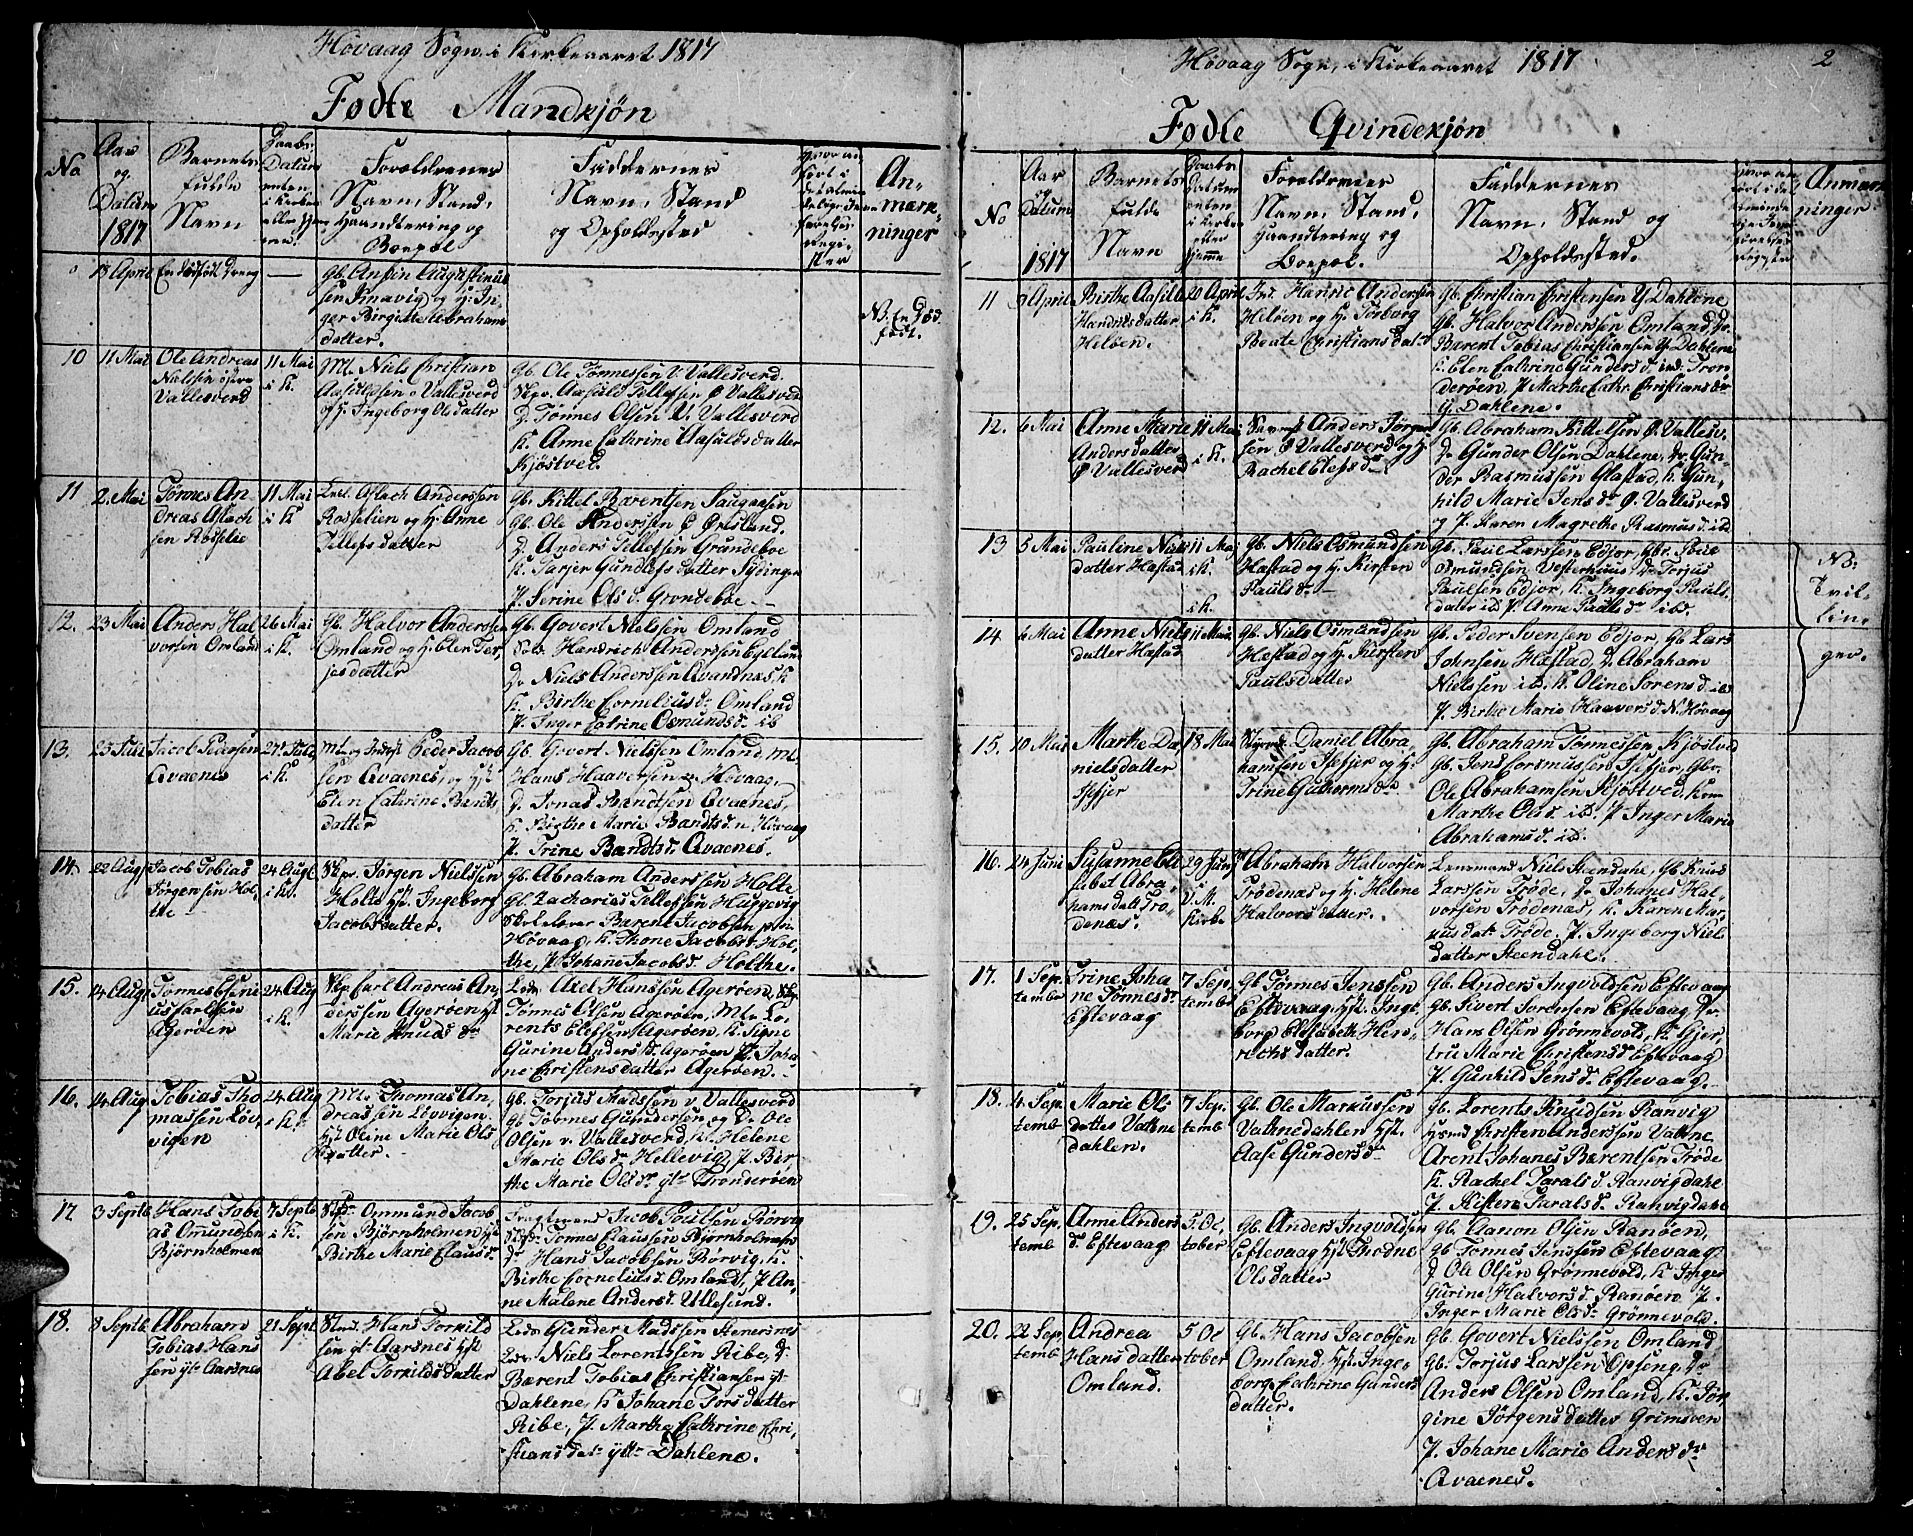 Høvaag Sogn, i Kirkeaaret 1817
Fødte Mandkjøn
No
Aar og Datum 1817
Barnets fulde Navn
Daabs Datum enten i Kirken eller Hjemme
Forældrenes Navn, Stand, Haandtering og Boepæl
Faddernes Navn, Stand og Opholdssted
Anmærkninger
13 April
En dødfødt Dreng
—
Gb. Ansten Augustinus
sen Smavig og H: In
ger Birgitte Abrahams
datter.
NB. En Død
født.
10
11 Mai
Ole Andreas
Nielsen øvre
Vallesverd
11 Mai
i K.
Mt. Niels Christian
Aasuldsen o Vallesverd
og H. Ingeborg Olsdatter
Gb. Ole Tønnessen V. Vallesverd.
Skpr. Aasuld Tellefsen Ø Vallesverd
D. Tønnes Olsen V. Vallesverd
K. Anne Cathrine Aasuldsdatter
Kjøstved.
11
2. Mai
Tønnes An
dreas Aslach
sen Rosselie
11 Mai
i K
Aslach Anderssen
Rosselien og H. Anne
Tellefsdatter
Gb. Kittel Barentsen
Gb. Ole Anderssen Ø Øresland.
D. Anders Tellefsen Grundeboe
K. Tarjer Gundlefsdatter
P. Serine Ols d. Grondeboe
12.
23 Mai
Anders Hal
vorsen Omland
26 Mai
i K.
Gb. Halvor Anderssen
Omland og H. Elen Ter
jesdatter
Gb. Govert Nielssen Omland
Hendrich Anderssen
Dr Niels Anderssen Qvandnas, K
K. Birthe Cornelius dr. Omland
P. Inger Catrine Osmunds d. ib
13.
23 Juli
Jacob Pedersen
Qvaenes
27 Juli
i K.
Peder Jacob
sen Qvaenes, og Hst.
Elen Cathrine Bendts
datter
Gb. Govert Nielssen Omland, Mt.
Hans Haaversen n. Høvaag,
D. Jonas Bendtsen Qvaenes,
K. Birthe Marie Bendts d. n. Høvaag
P. Trine Bendts d. Qvaenes.
14.
22 Augs
Jacob Tobias
Jørgensen Hol
the
24 Augs
i K.
Skpr. Jørgen Nielssen
Holte Hst. Ingeborg
Jacobsdatter.
Gb. Abraham Anderssen Holte
Gb. Zacharias Tellefsen Huggevig
Barent Jacobsen
Høvaag, K. Thone Jacobs d. Hol
the, P. Johane Jacobs d. Holthe.
15.
14 Aug
Tønnes
us Carlsen
Agerøen
24 Aug
i K.
Skp. Carl Andreas An
derssen Agerøen Hst
Marie Knuds dr
Lods. Axel Hanssen Agerøen, Skp.
Tønnes Olsen Agerøen, Mt. Lo
rents Elefsen Agerøen, K. Signe
Gurine Anders d. Agerøen P. Joha
ne Christensdatter Agerøen.
16.
14 Aug
Tobias Tho
massen Løv
vigen
24 Aug
i K.
Mt. Thomas An
dreassen Løvvigen
Hst Oline Marie Ols
datter.
Gb. Torjus Madssen v. Vallesverd
Gb Tønnes Gundersen og D. Ole
Olsen v. Vallesverd, K. Helene
Marie Ols dr Hellevig, P. Bir
the Marie Ols dr. yt. Tronderøen
17
3 Septb
Hans Tobi
as Omundsen
Bjørnholmen
7 Septb
i K.
Ommund Jacob
sen Bjørnholmen Hst
Birthe Marie Claus d.
Jacob Poulsen Børvig
Tønnes Claussen Bjørnholmen
Dr Hans Jacobsen Børvig, K.
Birthe Cornelius d. Omland, P. An
ne Malene Anders d. Ullesund.
18.
8 Septb
Abraham
Tobias Hans
sen yt. Aasnes
21 Sept
Hans Torkild
sen yt. Aarsnes Hst
Abel Torkildsdatter
Lods Gunder Madssen Stenersnes
Lods. Niels Lorentssen Ribe, D.
Barent Tobias Christiansen yt.
Dahlene, K Johane Torsdatter
Ribe, P. Marthe Cathrine Chri
stians datr ytr Dahlene.
Høvaag Sogn, i Kirkeaaret 1817.
2
Fødte Qvindekjøn
No
Aar og Datum 1817
Barnets fulde Navn
Daabs Datum enten i Kirken eller Hjemme
Forældrenes Navn, Stand, Haandtering og Boepæl.
Faddernes Navn, Stand og Opholdssted.
Anmærkninger
11
9 April
Birthe Aasille
Hendricsdatter
Heløen.
20 April
i K.
Ind. Hanric Andersen
Heløen og H. Torborg
Beate Christians datr
Gb. Christian Christensen Y. Dahlene
Gb. Halvor Anderssen Omland, Dr.
Barent Tobias Christiansen Y. Dahlene
K. Elen Cathrine Gunders d. ind. Tron
derøen, P. Marthe Cathr. Christians dr
y. Dahlene.
12.
6 Mai
Anne Marie
Andersdatter
Ø Vallesverd
11 Mai
i K.
Anders Jørgen
sen Ø Vallesverd og H.
Rachel Elefs dr
Gb. Abraham Kittelsen Ø. Vallesv.
Dr Gunder Olsen Dahlene, Dr. Gun
der Rasmussen Glastad, K. Gun
hild Marie Jens dr Ø. Vallesverd
og P. Karen Magrethe Rasmus d. ibd
13
5 Mai
Pauline Niels
datter Hæstad
11 Mai
i K.
i K.
Gb. Niels Osmundsen
Hæstad og H. Kirsten
Pauls dr
Gb. Paul Larssen Edjor, Gbr.
Osmundsen Vesterhuus Dr Torjus
Paulsen Edjor, K. Ingeborg Pauls
datter ibd P. Anne Pauls dr ibd.
NB:
Tvil
lin,
ger.
14
6 Mai
Anne Niels
datter Hæstad
11 Mai
Gb. Niels Osmundsen
Hæstad og H. Kirsten
Paulsdatter
Gb. Peder Svensen Edjor, Gb Lars
Johnsen Hæstad, Dr Abraham
Nielssen ibd. K. Oline Sorens d. ibd
P. Birthe Marie Haavers d. N. Høvaag
15.
10 Mai
Marthe Da
nielsdatter
18 Mai
Daniel Abra
hamsen og H.
Trine Guthorms dr
Gb. Abraham Tønnessen Kjøstved
Gb. Jens
Ole Abrahamsen Kjøstved, Kone
Marthe Ols d. ibd. P. Inger Marie
Abrahams d. ibd.
16.
24 Juni
Susanne Eli
sabet Abra
hams datt Trø
denæs.
29 Juni
V. M.
Kirke
Abraham Halvorsen
Trødenæs og H. Helene
Halvorsdatter.
Lensmand Niels Steendahl, Gb. Knud
Larssen Trøde, Dr Johanes Hal
vorsen Trødenæs, K. Karen Mag
nus datr Trøde. P. Ingeborg Niels
datter Steendahl.
17.
1 Sep
tembr
Trine Joha
ne Tønnes dr
Eftevaag
7 Sep
tembr
Gb. Tønnes Jenssen
Eftevaag, Hst. Inge
borg Elisabeth Hen
richsdatter.
Gb. Anders Ingvoldsen Eftevaag
Gb. Sivert Sorensen Eftevaag Dr.
Hans Olsen Grønnevold, K. Gjer
tru Marie Christens d. Eftevaag
P. Gunhild Jens d. Eftevaag.
18.
4 Sep.
temb
Marie Ols
datter Vatne
dahlen.
7 Sep.
temb
Gb. Ole Markussen
Vathnedahlen Hst.
Aase Gunders dr
Gb. Lorents Knudsen Ranvig
Christen Anderssen Vatne
Arent Johanes Bærentsen Trøde
K. Rachel Tarals d. Ranvigdahl
P. Kisten Tarals d. Ranvigdahl
19.
25 Sep,
temb
Anne Anders
d. Eftevaag
5. Oc
tober
Gb. Anders Ingvoldsen
Eftevaag Hst Thodne
Olsdatter
Gb. Aanon Olsen Ranøen,
Gb Tonnes Jenssen Eftevaag
D Ole Olsen Grønnevold, K Inger
Gurine Halvors d. Ranøen P.
Inger Marie Ols d. Grønnevold.
20.
22 Sep,
temb
Andrea
Hansdatter
Omland.
5 Oc
tober
Gb. Hans Jacobsen
Omland, Hst. Inge
borg Cathrine Gunders
datter.
Gb. Govert Nielssen Omland
Gb. Torjus Larssen Opseng. Dr
Anders Olsen Omland, K. Jør
gine Jørgensdatter Grimsven
P. Johane Marie Anders dr
Qvaenes.